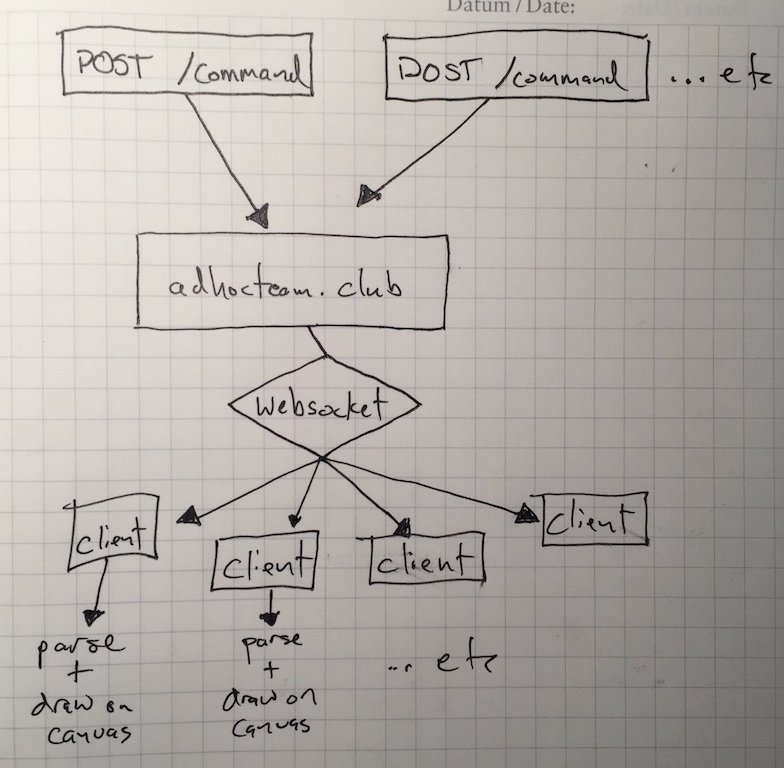 Datum / Date:
POST /command
POST /command
... etc
adhocteam.club
websocket
client
client
client
client
parse
+
draw on
canvas
parse
+
draw on
canvas
... etc